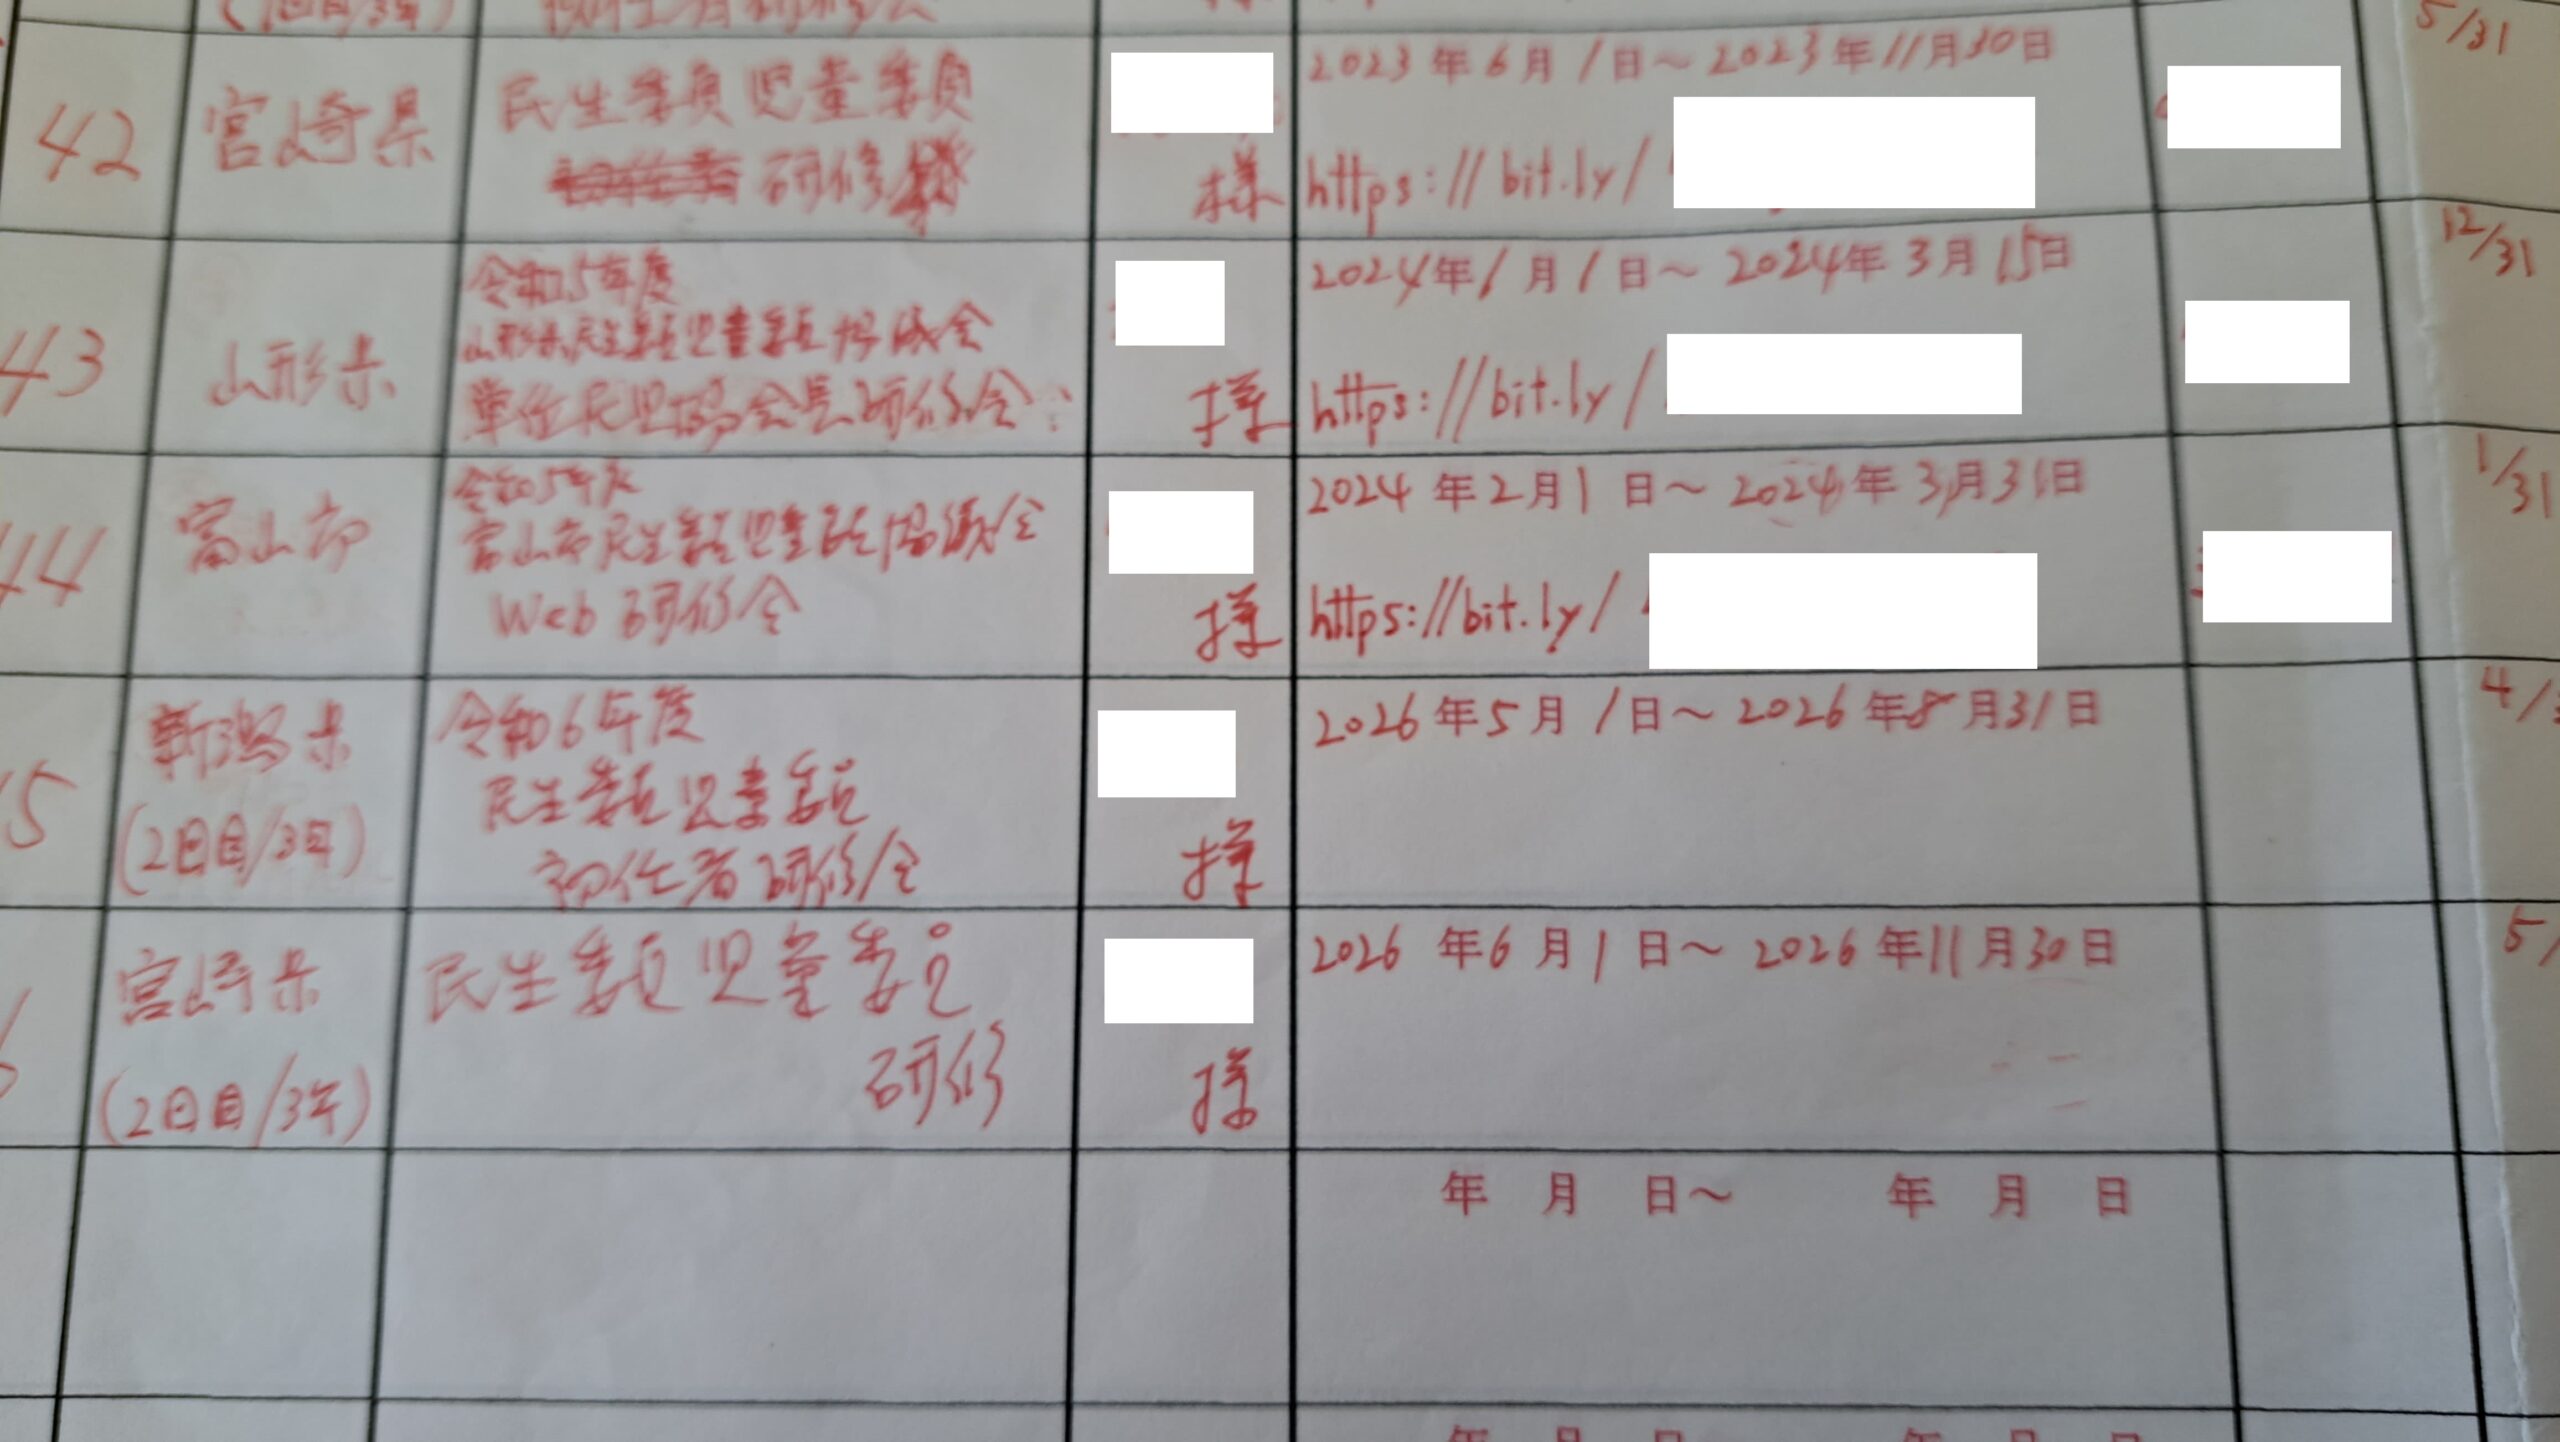 42
宮崎県
民生委員児童委員
研修
様
2023年6月1日～2023年11月30日
https://bit.ly/
5/31
43
山形県
令和5年度
山形県民生委員児童委員協議会
単位民児協会長研修会
様
2024年1月1日～2024年3月15日
https://bit.ly/
12/31
44
富山市
令和5年度
富山市民生委員児童委員協議会
Web研修会
様
2024年2月1日～2024年3月31日
https://bit.ly/
1/31
5
新潟県
(2回目/3年)
令和6年度
民生委員児童委員
初任者研修会
様
2026年5月1日～2026年8月31日
4/3
6
宮崎県
(2回目/3年)
民生委員児童委員
研修
様
2026年6月1日～2026年11月30日
5/
年 月 日～ 年 月 日